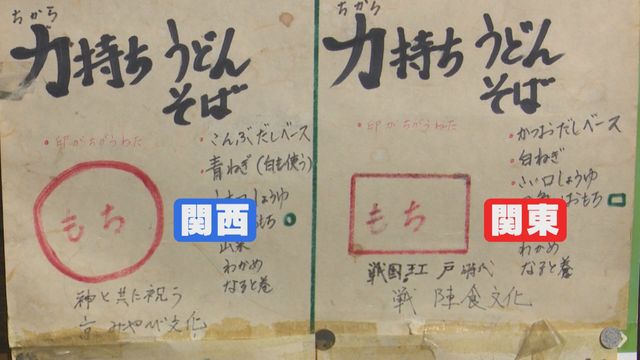 ちから
力持ちうどん
そば
・印がちがうわた
・こんぶだしベース
青ねぎ(白も使う)
もち
関西
わかめ
なると巻
神と共に祝う
みやび文化
ちから
力持ちうどん
そば
・印がちがうわた
・かつおだしベース
・白ねぎ
・こい口しょうゆ
おもち
もち
関東
わかめ
なると巻
戦国 江戸時代
戦 陣食文化